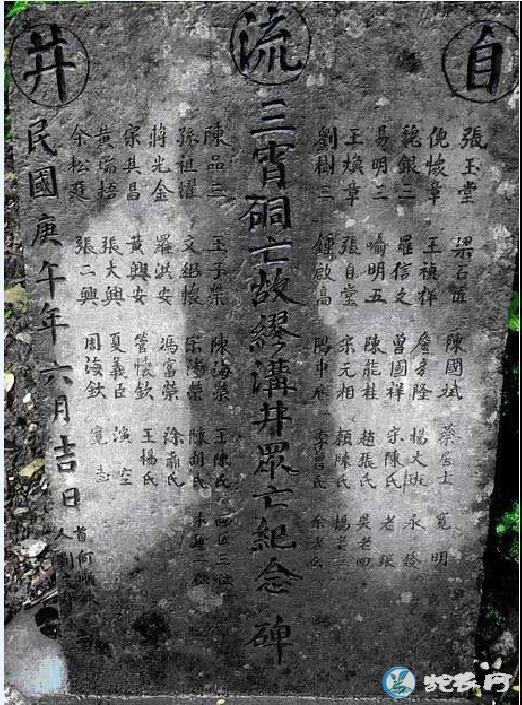 自流井
張玉堂 梁石匠 陳國斌 蔡居士 寬明
倪懷章 王禎祥 詹孝隆 楊大
魏銀二 羅信文 曾國祥 宗陳氏 老張
易明三 喻明五 陳能桂 趙張氏 吳老四
王煥章 張自堂 宋元相 顏陳氏 楊老三
劉樹三 鍾啟高 李曾氏 余老五
三霄硐亡故繆溝井眾亡紀念碑
陳品三 王子榮 陳海榮 王陳氏
孫祖濯 文紹懷 宋海榮 陳胡氏
蔣光金 羅洪安 馮富榮 徐蕭氏
宗其昌 黃興安 管懷欽 王楊氏
黃瑞梧 張大興 夏義臣 演空
余松廷 張二興 周海欽 寬志
民國庚午年六月吉日
首人
蛇农网